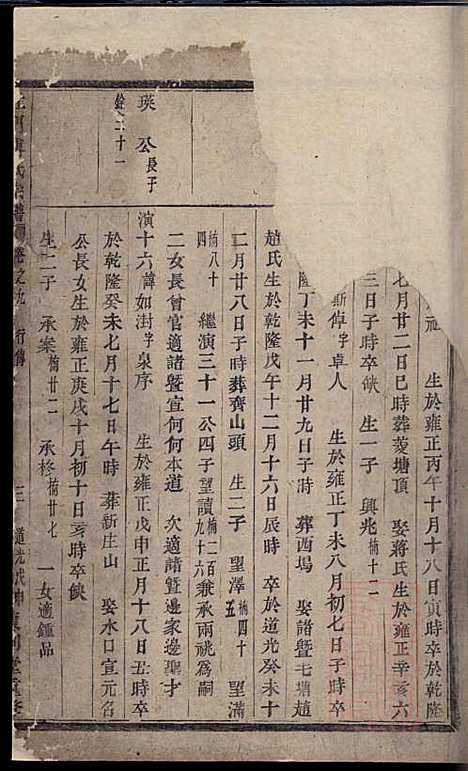 生於雍正丙午十月十八日寅時卒於乾隆
七月廿二日巳時葬菱塘頂 娶蔣氏生於雍正辛亥六
三日子時卒缺 生一子 興兆楠十二
斯倬字卓人 生於雍正丁未八月初七日子時卒
隆丁未十一月廿九日子時 葬西塢 娶諸暨毛塘趙
趙氏生於乾隆戊午十二月十六日辰時 卒於道光癸未十
二月廿八日子時葬齊山頭 生二子 望澤楠四十五 望滿
楠八十四 繼演三十一公四子望讀楠二百九十六兼承兩祧為嗣
二女長曾官適諸暨宣何何本道 次適諸暨邊家邊聖才
瑛公長子
銓二十一
演十六諱如澍字泉序 生於雍正戊申正月十八日丑時卒
於乾隆癸未七月十七日午時 葬新庄山 娶水口宣元名
公長女生於雍正庚戌十月初十日亥時卒缺
生二子 承案楠廿二 承柊楠廿七 一女適鍾品
卷之九 行傳 三 道光戊申